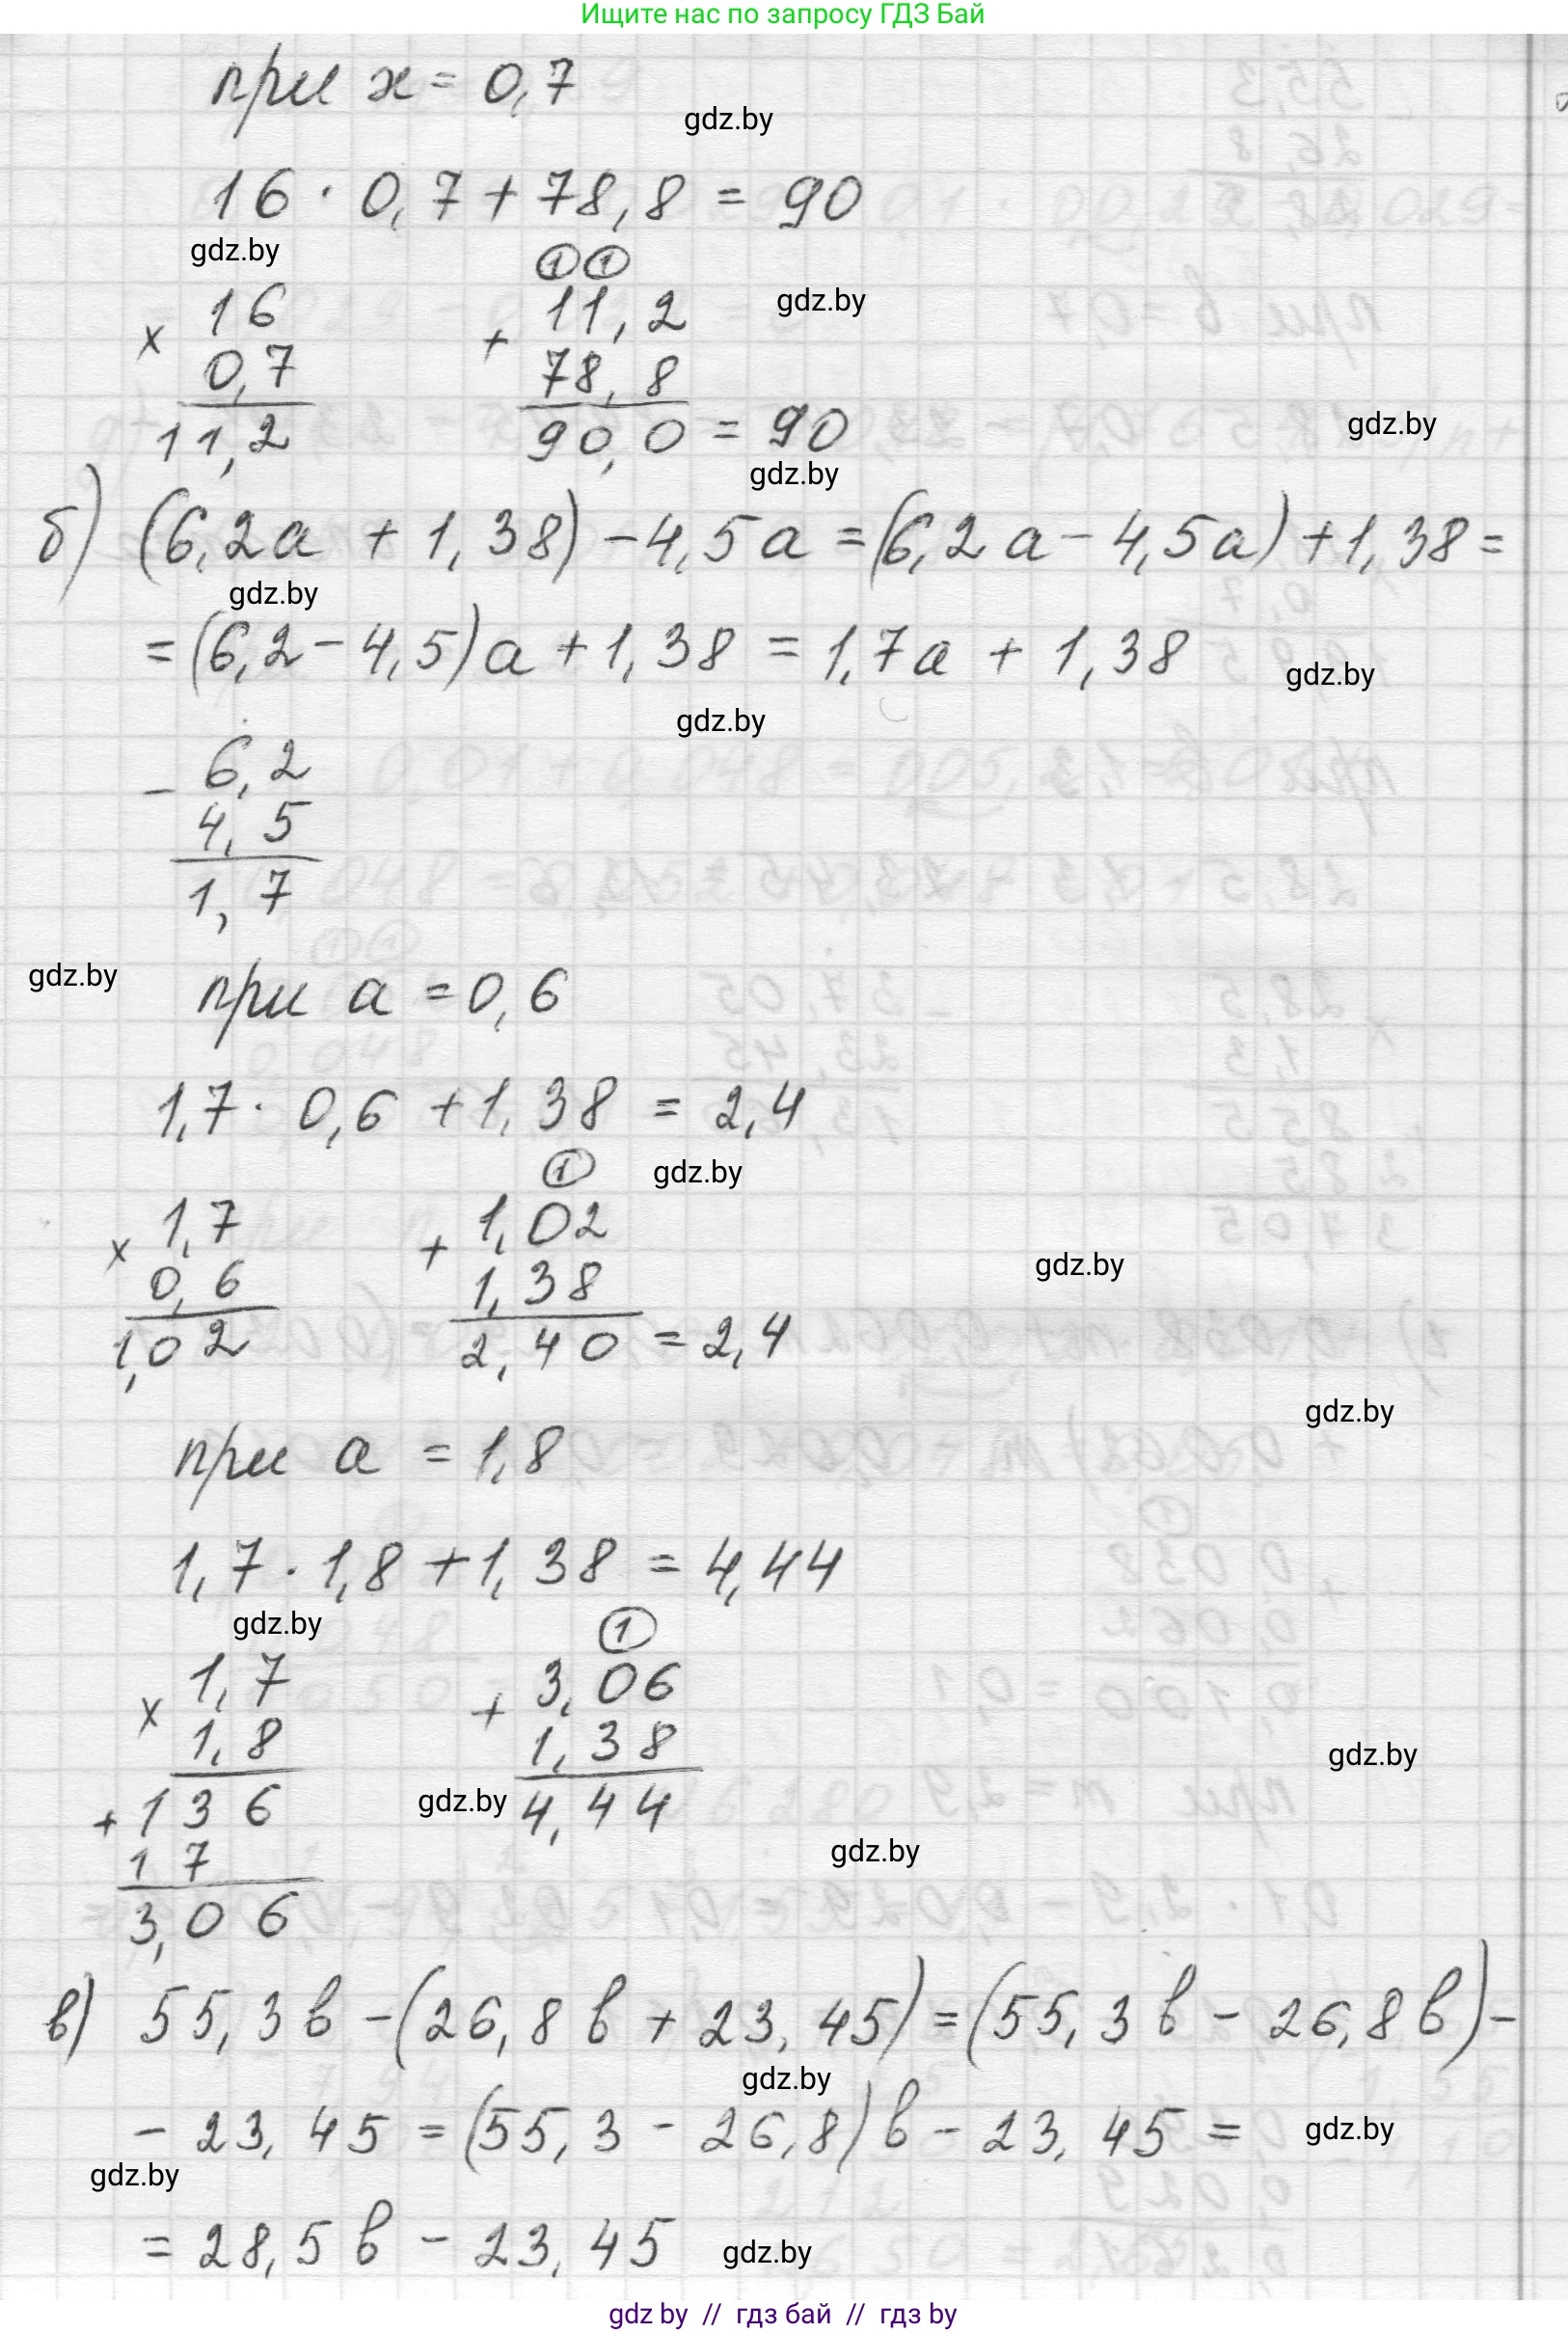 Ищите нас по запросу ГДЗ Бай
при x = 0,7
gdz.by
16 · 0,7 + 78,8 = 90
gdz.by
① ①
× 16 + 11,2 gdz.by
0,7 78,8
11,2 90,0 = 90 gdz.by
gdz.by
б) (6,2a + 1,38) - 4,5a = (6,2a - 4,5a) + 1,38 =
gdz.by
= (6,2 - 4,5)a + 1,38 = 1,7a + 1,38
gdz.by
gdz.by
- 6,2
4,5
1,7
gdz.by
при a = 0,6
1,7 · 0,6 + 1,38 = 2,4
① gdz.by
× 1,7 + 1,02
0,6 1,38 gdz.by
1,02 2,40 = 2,4
gdz.by
при a = 1,8
1,7 · 1,8 + 1,38 = 4,44
gdz.by ①
× 1,7 + 3,06
1,8 1,38 gdz.by
+ 136 gdz.by 4,44
17 gdz.by
3,06
в) 55,3b - (26,8b + 23,45) = (55,3b - 26,8b) -
gdz.by
- 23,45 = (55,3 - 26,8)b - 23,45 = gdz.by
gdz.by
= 28,5b - 23,45 gdz.by
gdz by // гдз бай // гдз by